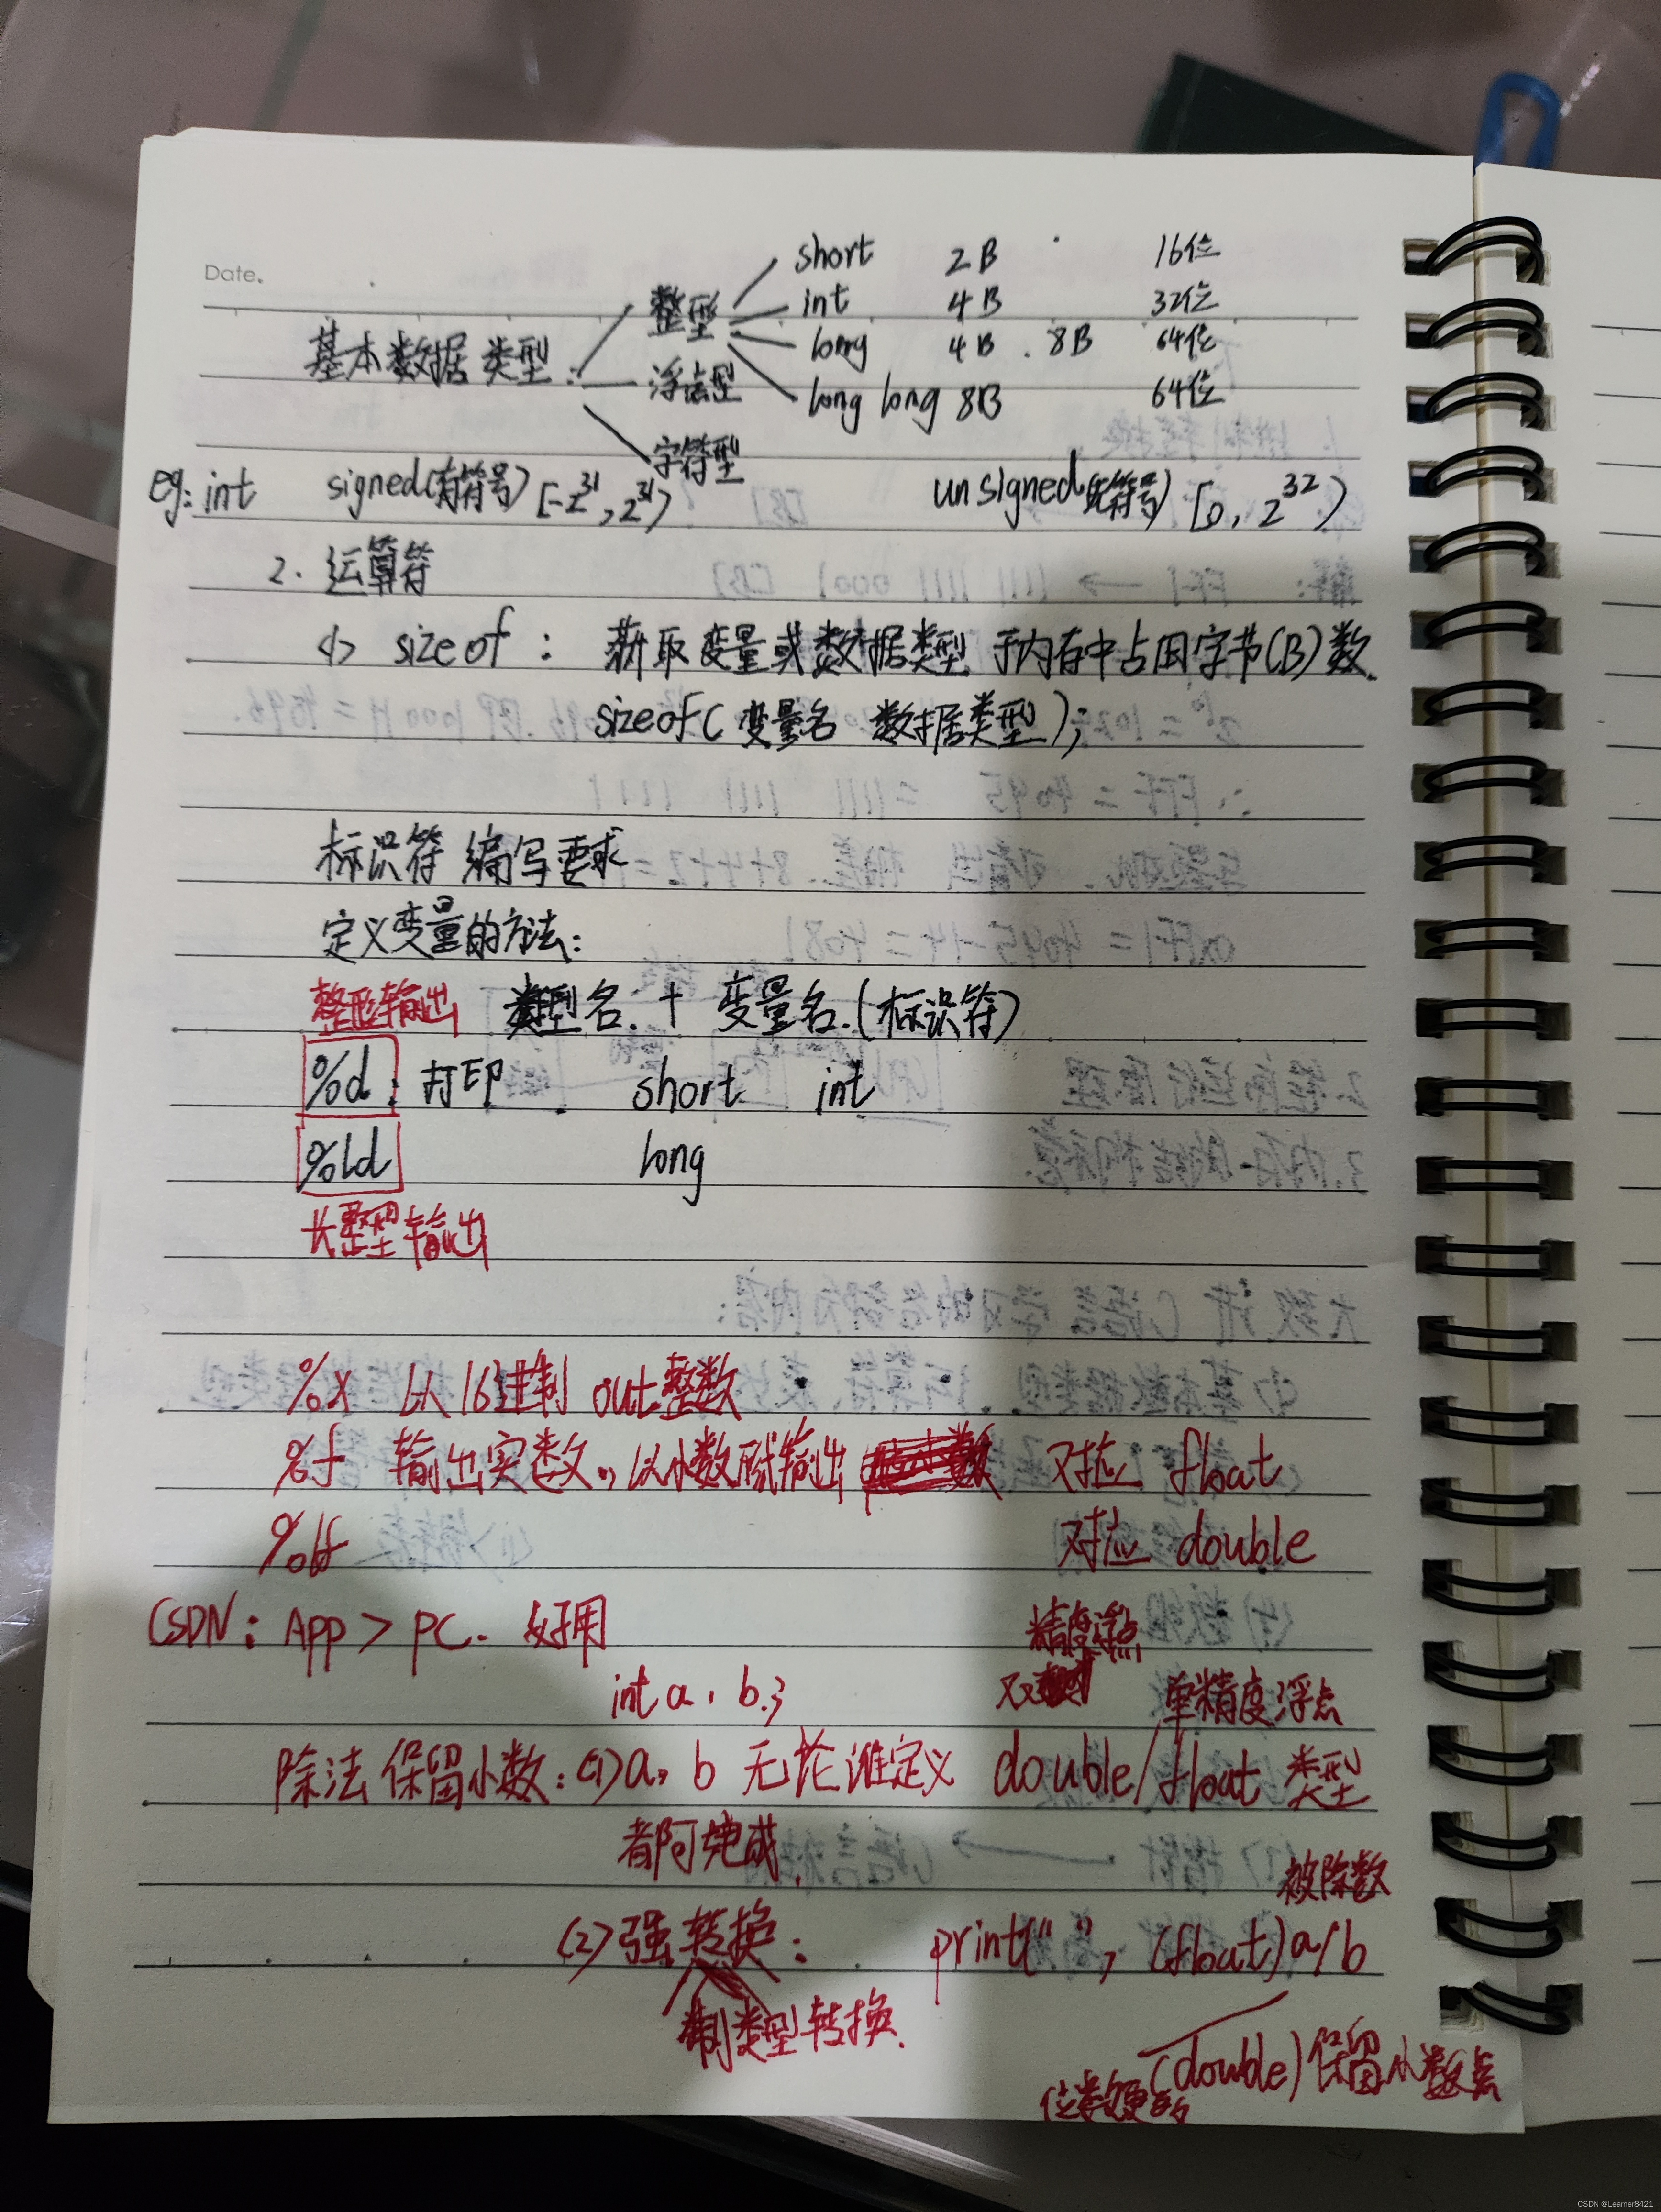 Date.
short 2B 16位
整型 int 4B 32位
基本数据类型: long 4B . 8B 64位
浮点型 long long 8B 64位
字符型
eg: int signed(有符号) [-2^31, 2^31) unsigned(无符号) [0, 2^32)
2. 运算符
<1> sizeof : 获取变量或数据类型 于内存中占用字节(B)数.
sizeof( 变量名 数据类型);
标识符 编写要求
定义变量的方法:
整形输出 类型名. + 变量名.(标识符)
%d : 打印 short int
%ld long
长整型输出
%x 以16进制 out整数
%f 输出实数., 以小数形式输出 对应 float
%lf 对应 double
CSDN: App > PC. 好用
精度浮点
int a, b.; 双 单精度浮点
除法保留小数: (1) a, b 无论谁定义 double/float 类型
都可完成.
被除数
(2) 强转换: print(" ", (float)a/b
制类型转换.
(double) 保留小数点
位数更多
CSDN @Learner8421